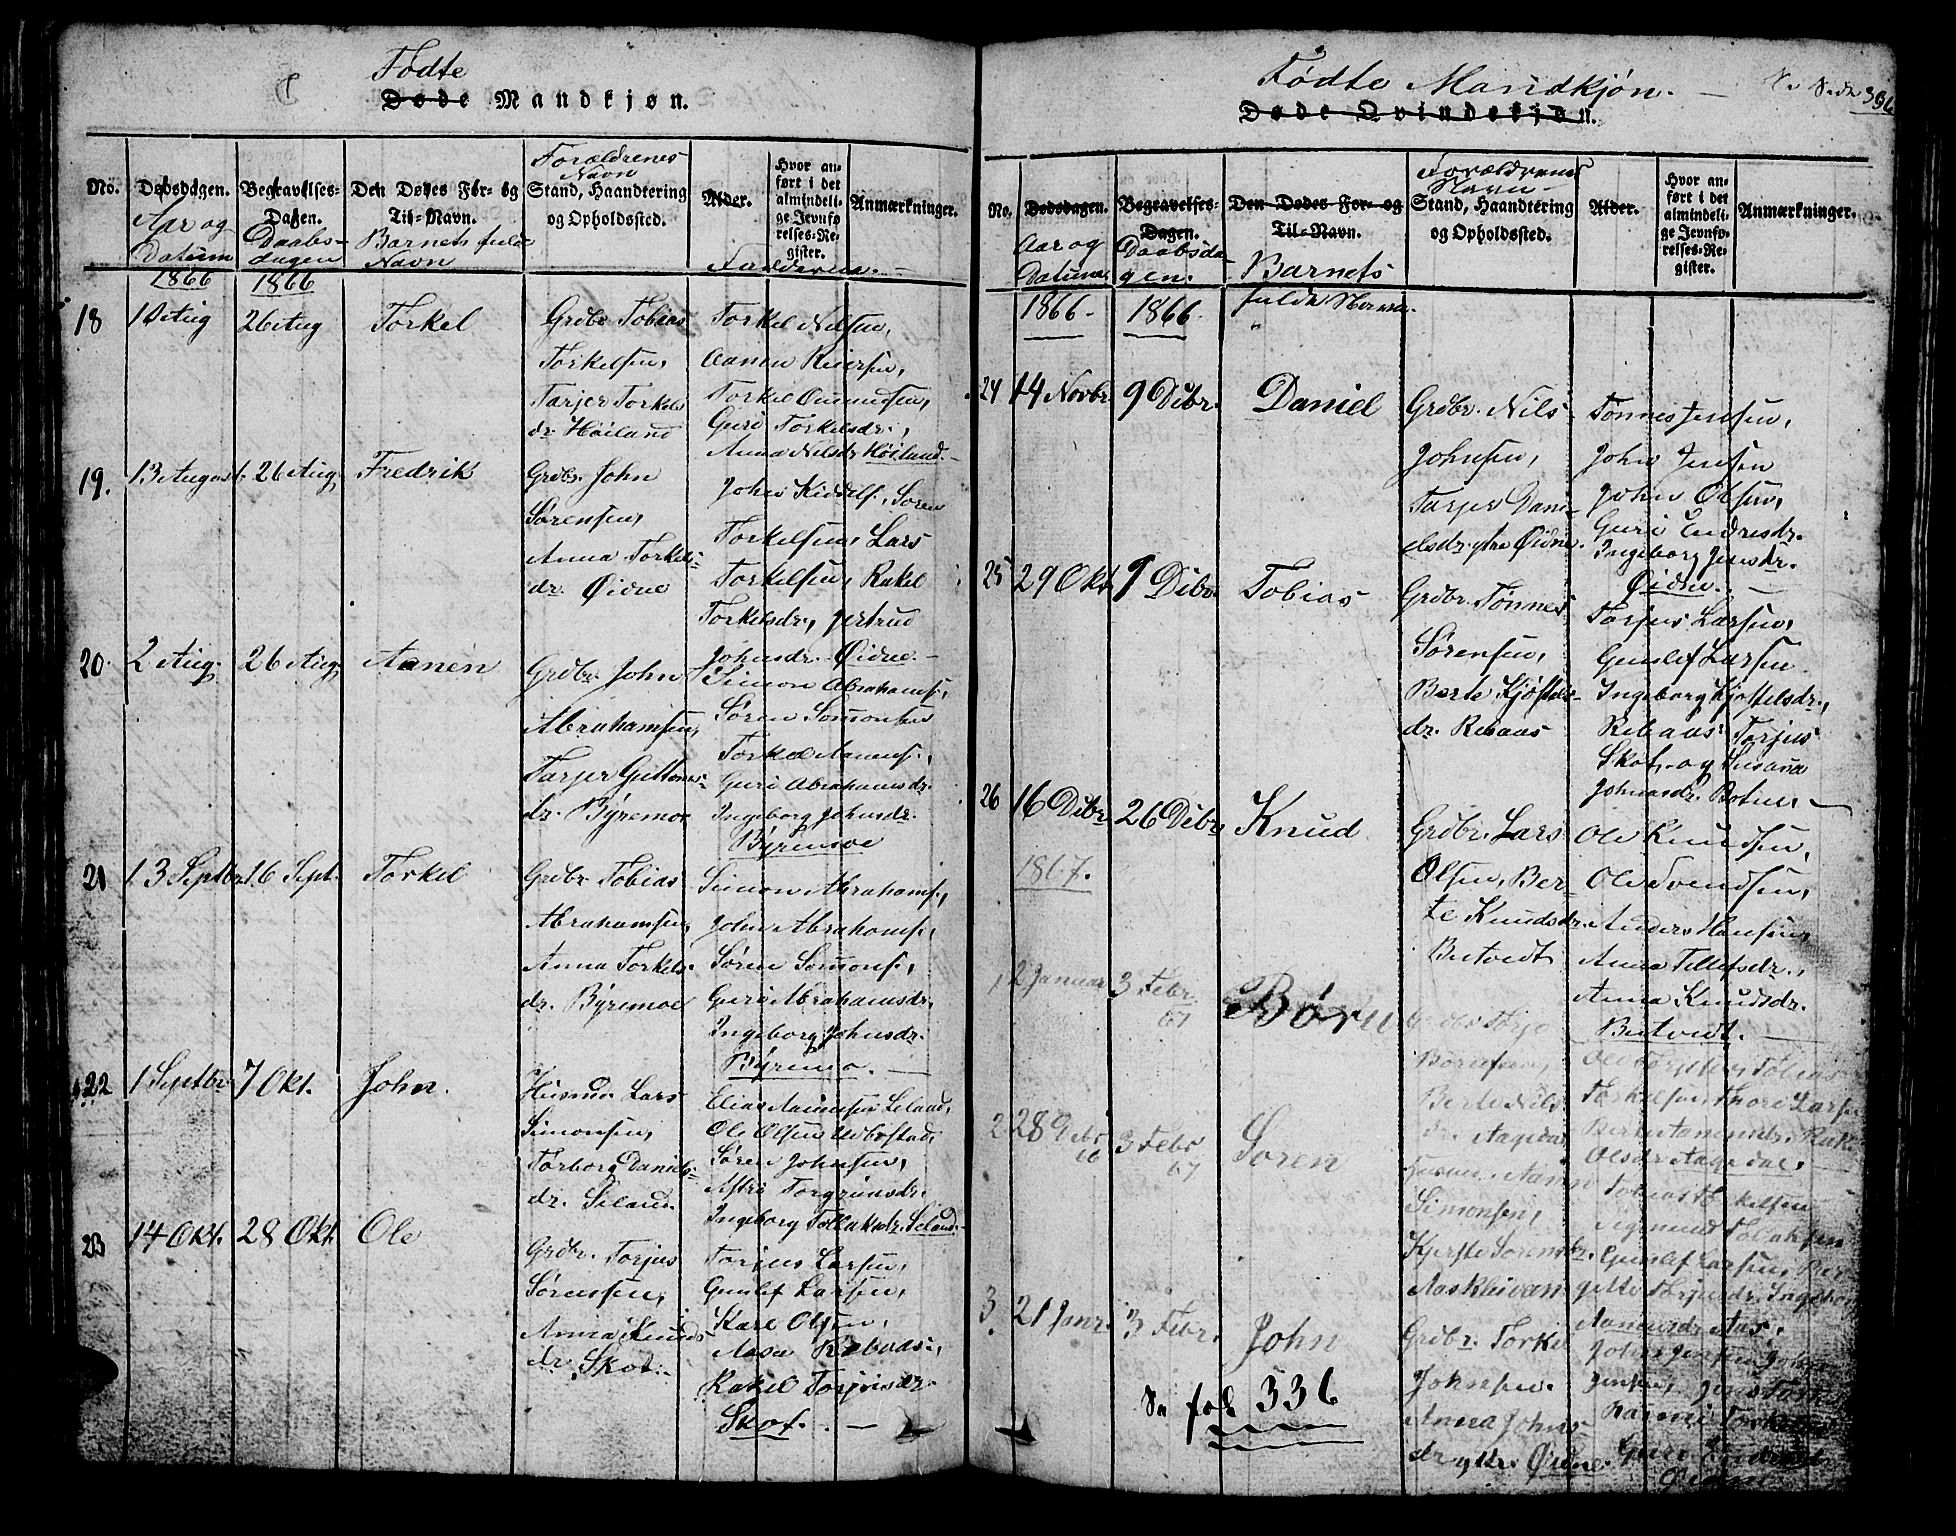 Fødte
Døde Mandkjøn.
No.
Dødsdagen.
Aar og
Datum
Begravelses-
Dagen.
Daabs-
dagen
Den Dødes For- og
Til-Navn.
Barnets fulde
Navn
Forældrenes
Navn
Stand, Haandtering
og Opholdssted.
Alder.
Faddernes
Hvor an-
ført i det
almindeli-
ge Jevnfø-
relses-Re-
gister.
Anmærkninger.
1866
1866
18
10 Aug
26 Aug
Torkel
Grdbr Tobias
Torkelsen,
Tarjer Torkels
dr. Høiland
Torkel Nilsen,
Aanen Reiersen,
Torkel Omundsen,
Guri Torkelsdr.,
Anna Nilsdr Høiland.
19.
13 August
26 Aug
Fredrik
Grdbr. John
Sørensen,
Anna Torkels-
dr. Øidne
John Kiddelf., Soren
Torkelsen, Lars
Torkelsen, Rakel
Torkelsdr., Gertrud
Johnsdr. Øidne.
20.
2 Aug.
26 Aug
Aanen
Grdbr. John
Abrahamsen,
Tarjer Guttorms-
dr. Byremo
Simon Abrahamf.,
Søren Somonsen
Torkel Aanenf.,
Guri Abrahamsdr.
Ingeborg Johnsdr.
Byremoe
21
13 Septbr
16 Sept.
Torkel
Grdbr Tobias
Abrahamsen,
Anna Torkels-
dr. Byremoe
Simon Abrahamf.,
John Abrahamf.,
Søren Somonf.,
Guri Abrahamsdr,
Ingeborg Johnsdr.
Byremo.
22
1 Septbr
7 Okt.
John.
Husmd Lars
Simonsen,
Torborg Daniels-
dr. Seland
Elias Aanensen Seland,
Ole Olsen Udbostad,
Søren Johnsen,
Astri Torgrimsdr.
Ingeborg Tollaksdr. Seland.
23
14 Okt.
28 Okt.
Ole
Grdbr. Torjus
Sørensen,
Anna Knuds
dr. Skot.
Torjus Larsen,
Gunlef Larsen,
Karl Olsen,
Aasa
Rakel Torjusdr.
Skot.
Fødte Mandkjøn.
Se Side 336
Døde Qvindekjøn.
No.
Dødsdagen.
Aar og
Datum
Begravelses-
Dagen.
Daabsda-
gen.
Den Dødes For- og
Til-Navn.
Barnets
fulde Navn.
Forældrenes
Navn
Stand, Haandtering
og Opholdssted.
Alder.
Hvor an-
ført i det
almindeli-
ge Jevnfø-
relses-Re-
gister.
Anmærkninger.
1866.
1866.
24
14 Novbr.
9 Dcbr.
Daniel
Grdbr. Nils
Johnsen,
Tarjer Dani-
elsdr. ytre Øidne.
Tønnes Jensen,
John Jensen
John Olsen,
Guri Endresdr.
Ingeborg Jensdr.
Øidne.
25
29 Okt
9 Dcbr.
Tobias
Grdbr. Tønnes
Sørensen,
Berte Kjøstels-
dr. Rebaas
Torjus Larsen,
Gunlef Larsen
Ingeborg Kjøstelsdr.,
Rebaas. Torjus
Skot, og Susana
Johnsdr. Botne,
26
16 Dcbr
26 Dcbr
Knud
Grdbr. Lars
Olsen, Ber-
te Knudsdr.
Butvedt
Ole Knudsen,
Ole Svendsen,
Anders Hansen,
Anna Tellefsdr.,
Anna Knudsdr.
Butvedt.
1867.
1
2 Januar
3 Febr.
67
Børu
Torjo
Berte Nils
dr. Aagedal
Ole Tobias
Torkelsen, Thore Larsen
Berte Aanensdr.
Olsdr Aagedal.
2
28
66
3 Febr
67
Soren
Aanen
Simonsen,
Kjerste Sorensdr.
Aaskleivan
Tobias Torkelsen
Sigmund Tobiassen
Gunlef Larsen, Ber
gitte Torjusdr, Ingeborg
Aanensdr Aas.
3.
21 Janr.
3 Febr.
John
Grdbr. Torkel
Johnsen.
Anna Johns-
dr ytre Øidne.
John Jensen John
Jensen, Jens
Guri
Øidne
Se fol 336